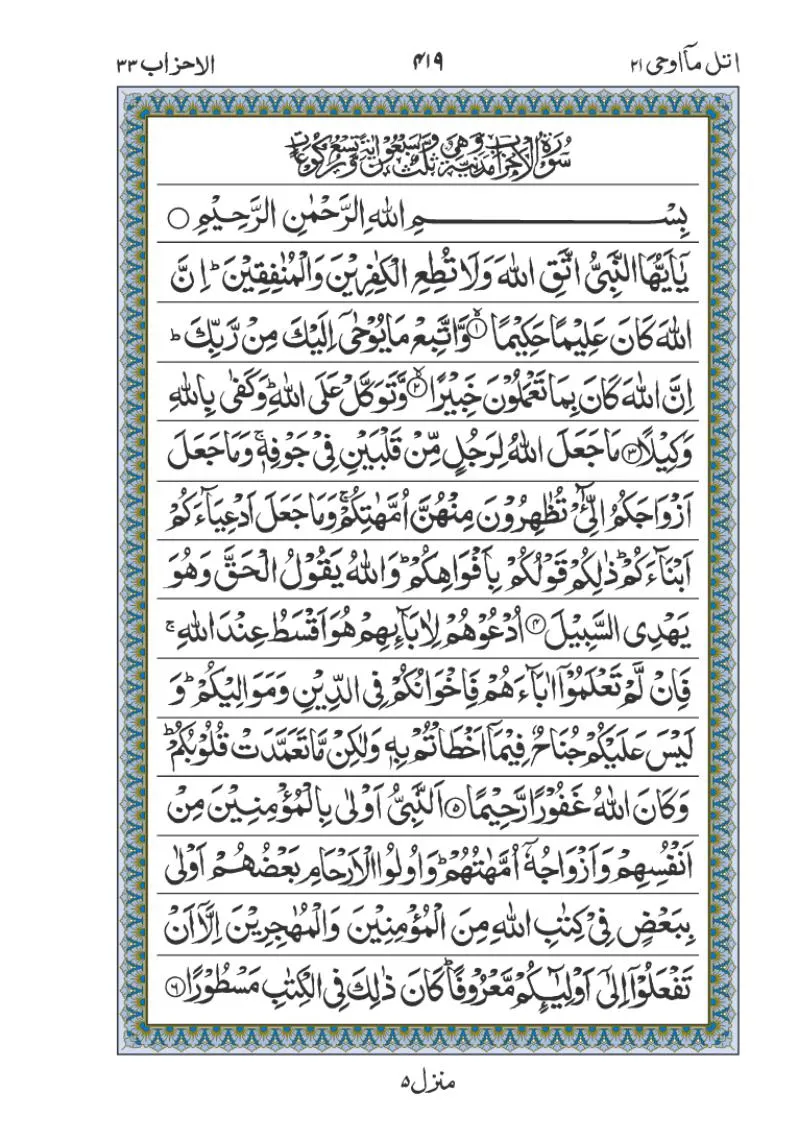 اتل مآاوحی ۲۱
۴۱۹
الاحزاب ۳۳
سُوْرَةُ الْاَحْزَابِ مَدَنِيَّةٌ وَّهِيَ ثَلٰثٌ وَّسَبْعُوْنَ اٰيَةً وَّتِسْعُ رُكُوْعَاتٍ
بِسْــــــــــــــــــمِ اللهِ الرَّحْمٰنِ الرَّحِيْمِ ○
يٰٓاَيُّهَا النَّبِيُّ اتَّقِ اللهَ وَلَا تُطِعِ الْكٰفِرِيْنَ وَالْمُنٰفِقِيْنَ ؕ اِنَّ
اللهَ كَانَ عَلِيْمًا حَكِيْمًا ۙ﴿۱﴾ وَّاتَّبِعْ مَا يُوْحٰۤى اِلَيْكَ مِنْ رَّبِّكَ ؕ
اِنَّ اللهَ كَانَ بِمَا تَعْمَلُوْنَ خَبِيْرًا ۙ﴿۲﴾ وَّتَوَكَّلْ عَلَى اللهِ ؕ وَكَفٰى بِاللهِ
وَكِيْلًا ﴿۳﴾ مَا جَعَلَ اللهُ لِرَجُلٍ مِّنْ قَلْبَيْنِ فِيْ جَوْفِهٖ ۚ وَمَا جَعَلَ
اَزْوَاجَكُمُ الّٰٓـِٔيْ تُظٰهِرُوْنَ مِنْهُنَّ اُمَّهٰتِكُمْ ۚ وَمَا جَعَلَ اَدْعِيَآءَكُمْ
اَبْنَآءَكُمْ ؕ ذٰلِكُمْ قَوْلُكُمْ بِاَفْوَاهِكُمْ ؕ وَاللهُ يَقُوْلُ الْحَقَّ وَهُوَ
يَهْدِى السَّبِيْلَ ﴿۴﴾ اُدْعُوْهُمْ لِاٰبَآئِهِمْ هُوَ اَقْسَطُ عِنْدَ اللهِ ۚ
فَاِنْ لَّمْ تَعْلَمُوْۤا اٰبَآءَهُمْ فَاِخْوَانُكُمْ فِى الدِّيْنِ وَمَوَالِيْكُمْ ؕ وَ
لَيْسَ عَلَيْكُمْ جُنَاحٌ فِيْمَاۤ اَخْطَاْتُمْ بِهٖ وَلٰكِنْ مَّا تَعَمَّدَتْ قُلُوْبُكُمْ ؕ
وَكَانَ اللهُ غَفُوْرًا رَّحِيْمًا ﴿۵﴾ اَلنَّبِيُّ اَوْلٰى بِالْمُؤْمِنِيْنَ مِنْ
اَنْفُسِهِمْ وَاَزْوَاجُهٗۤ اُمَّهٰتُهُمْ ؕ وَاُولُوا الْاَرْحَامِ بَعْضُهُمْ اَوْلٰى
بِبَعْضٍ فِيْ كِتٰبِ اللهِ مِنَ الْمُؤْمِنِيْنَ وَالْمُهٰجِرِيْنَ اِلَّاۤ اَنْ
تَفْعَلُوْۤا اِلٰۤى اَوْلِيٰٓئِكُمْ مَّعْرُوْفًا ؕ كَانَ ذٰلِكَ فِى الْكِتٰبِ مَسْطُوْرًا ﴿۶﴾
منزل ۵